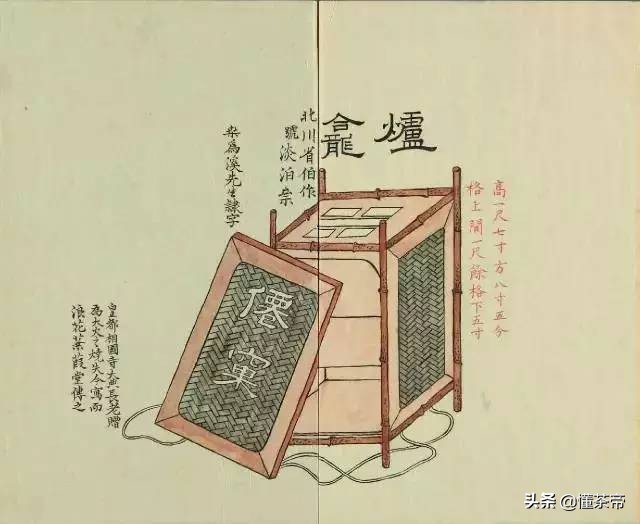 爐龕
高一尺七寸方八寸五分
格上間一尺餘格下五寸
北川省伯作
號淡泊
柴為溪先生隸字
僊窠
皇都相國寺大典長老贈
為大火燒失今寫而
浪花蒹葭堂傳之
头条 @懂茶帝